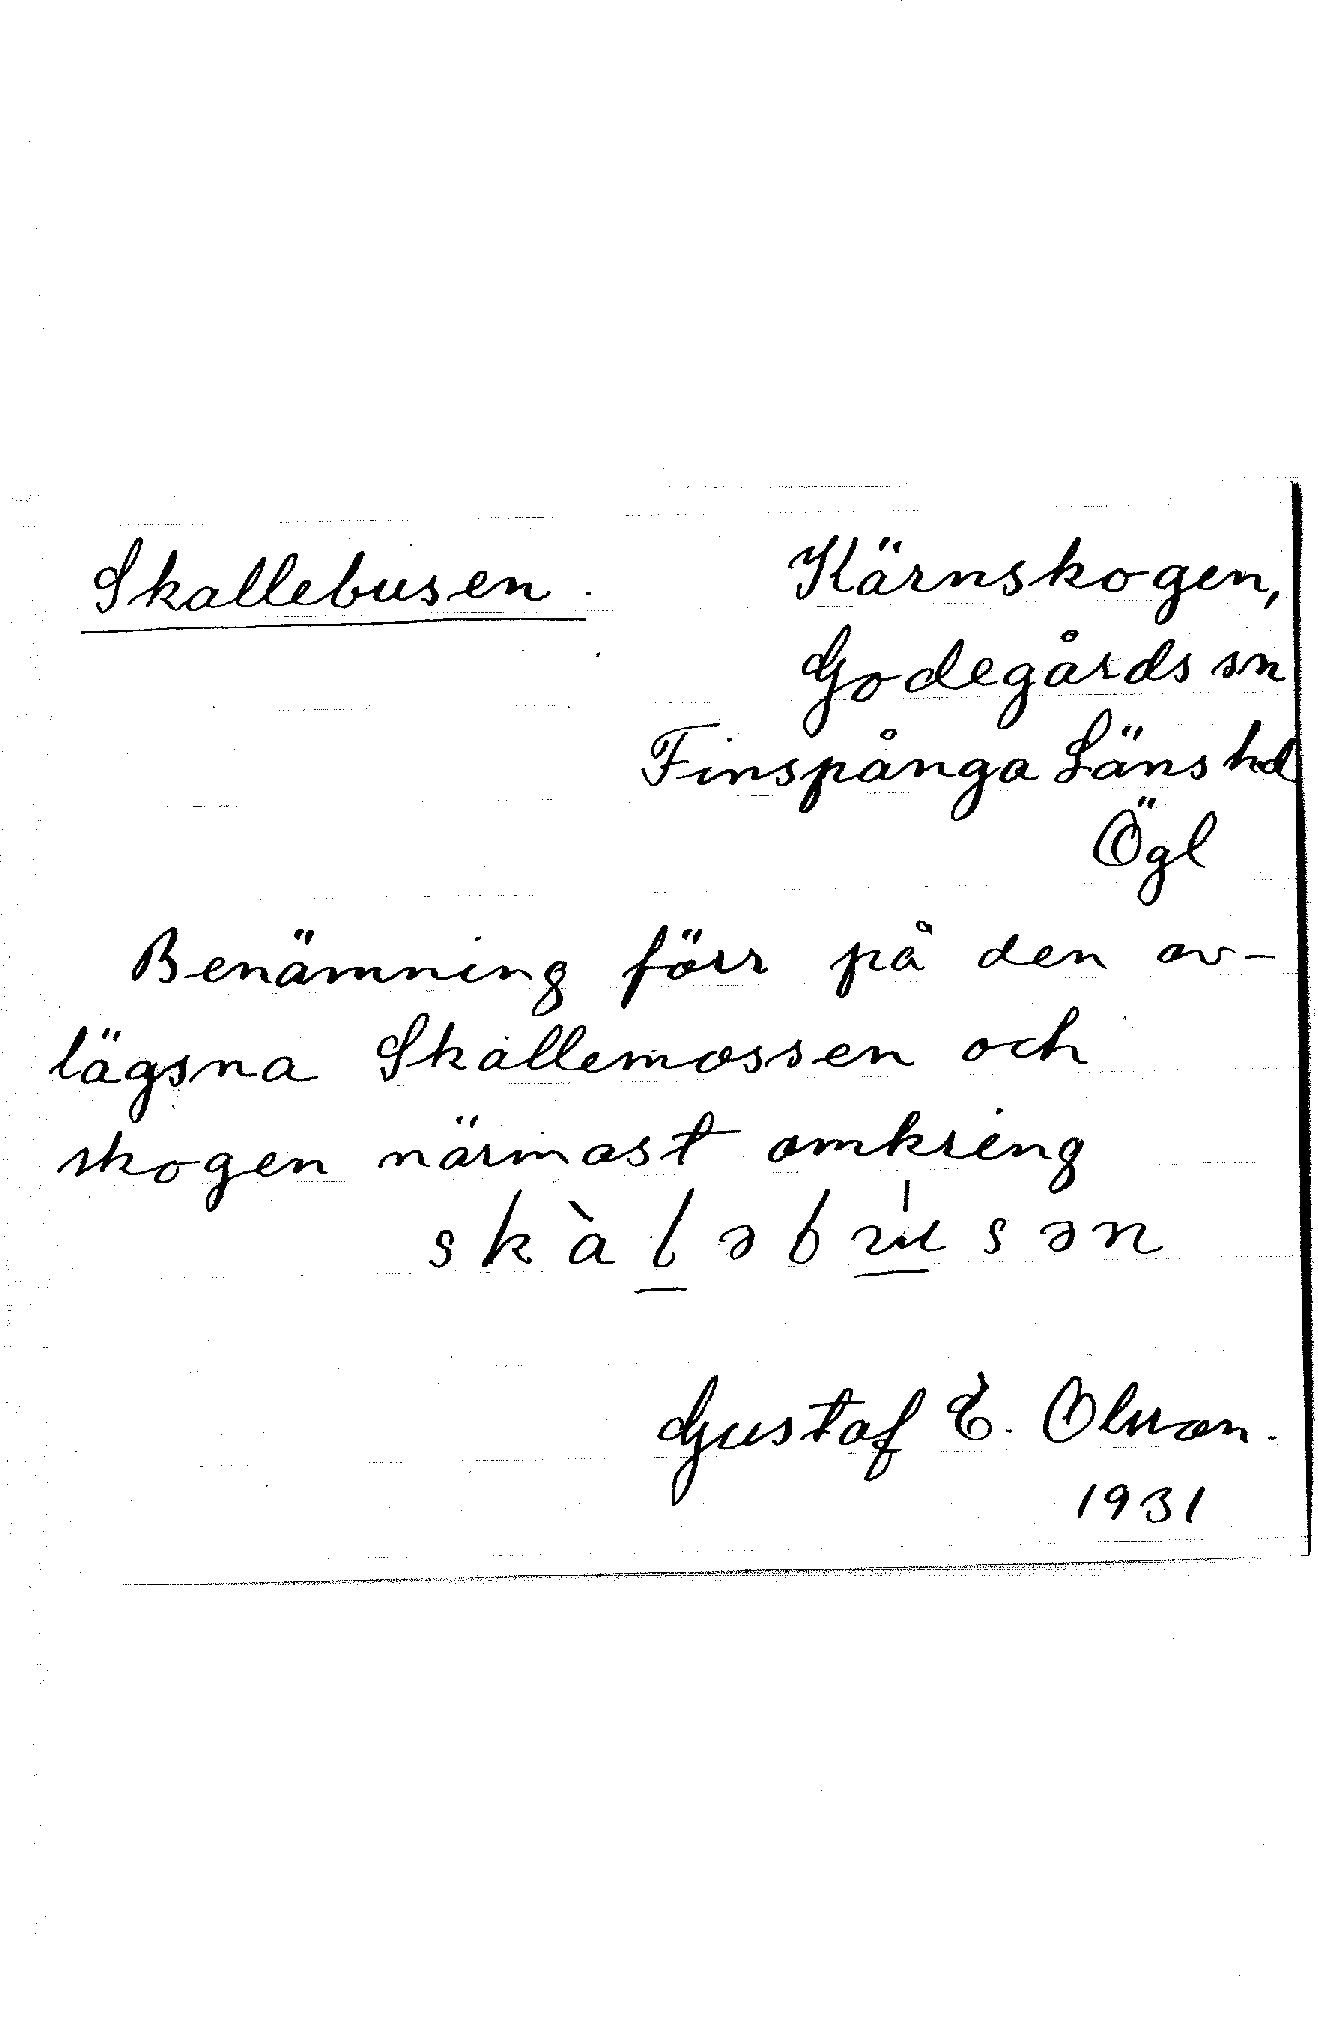 Skallebusen.
Kärnskogen,
Godegårds sn
Finspånga Läns hd
Ögl
Benämning förr på den av-
lägsna Skallemossen och
skogen närmast omkring
skàləbu̍sən
Gustaf E. Olsson.
1931